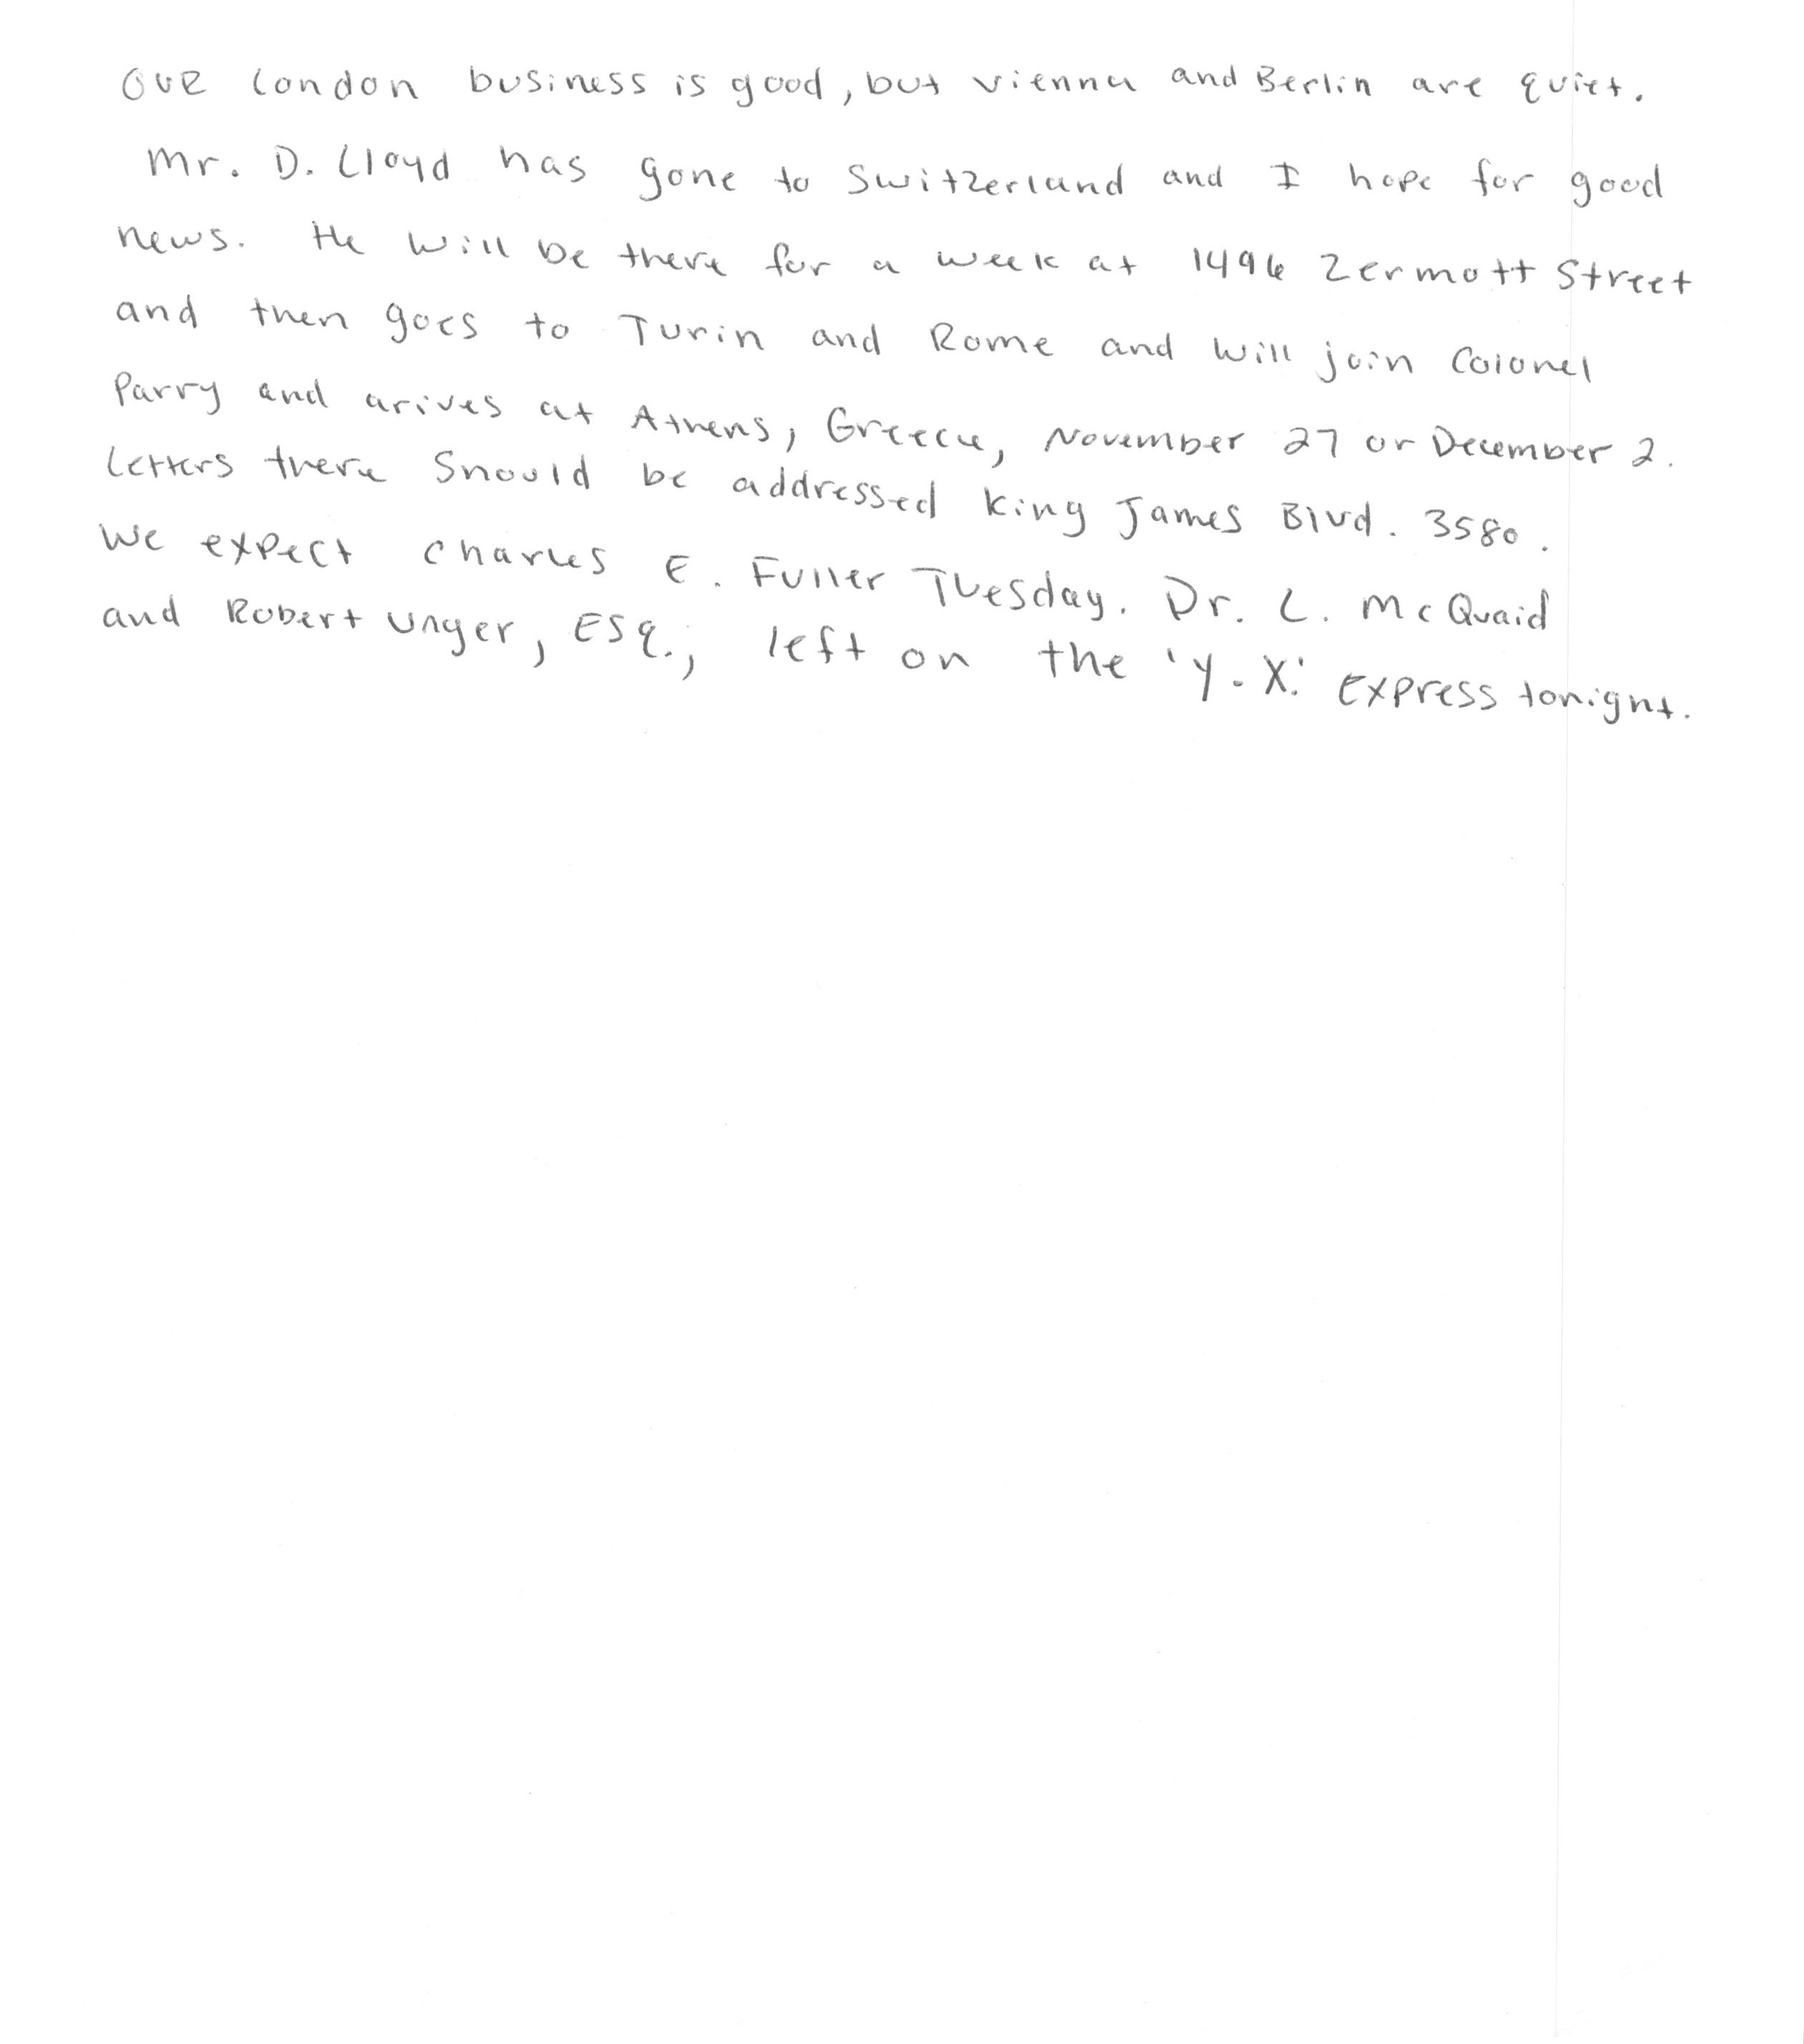 Our London business is good, but Vienna and Berlin are quiet.
Mr. D. Lloyd has gone to Switzerland and I hope for good
news. He will be there for a week at 1496 Zermott Street
and then goes to Turin and Rome and will join Colonel
Parry and arives at Athens, Greece, November 27 or December 2.
Letters there should be addressed King James Blvd. 3580.
We expect Charles E. Fuller Tuesday. Dr. L. McQuaid
and Robert Unger, Esq., left on the 'Y.X.' Express tonight.